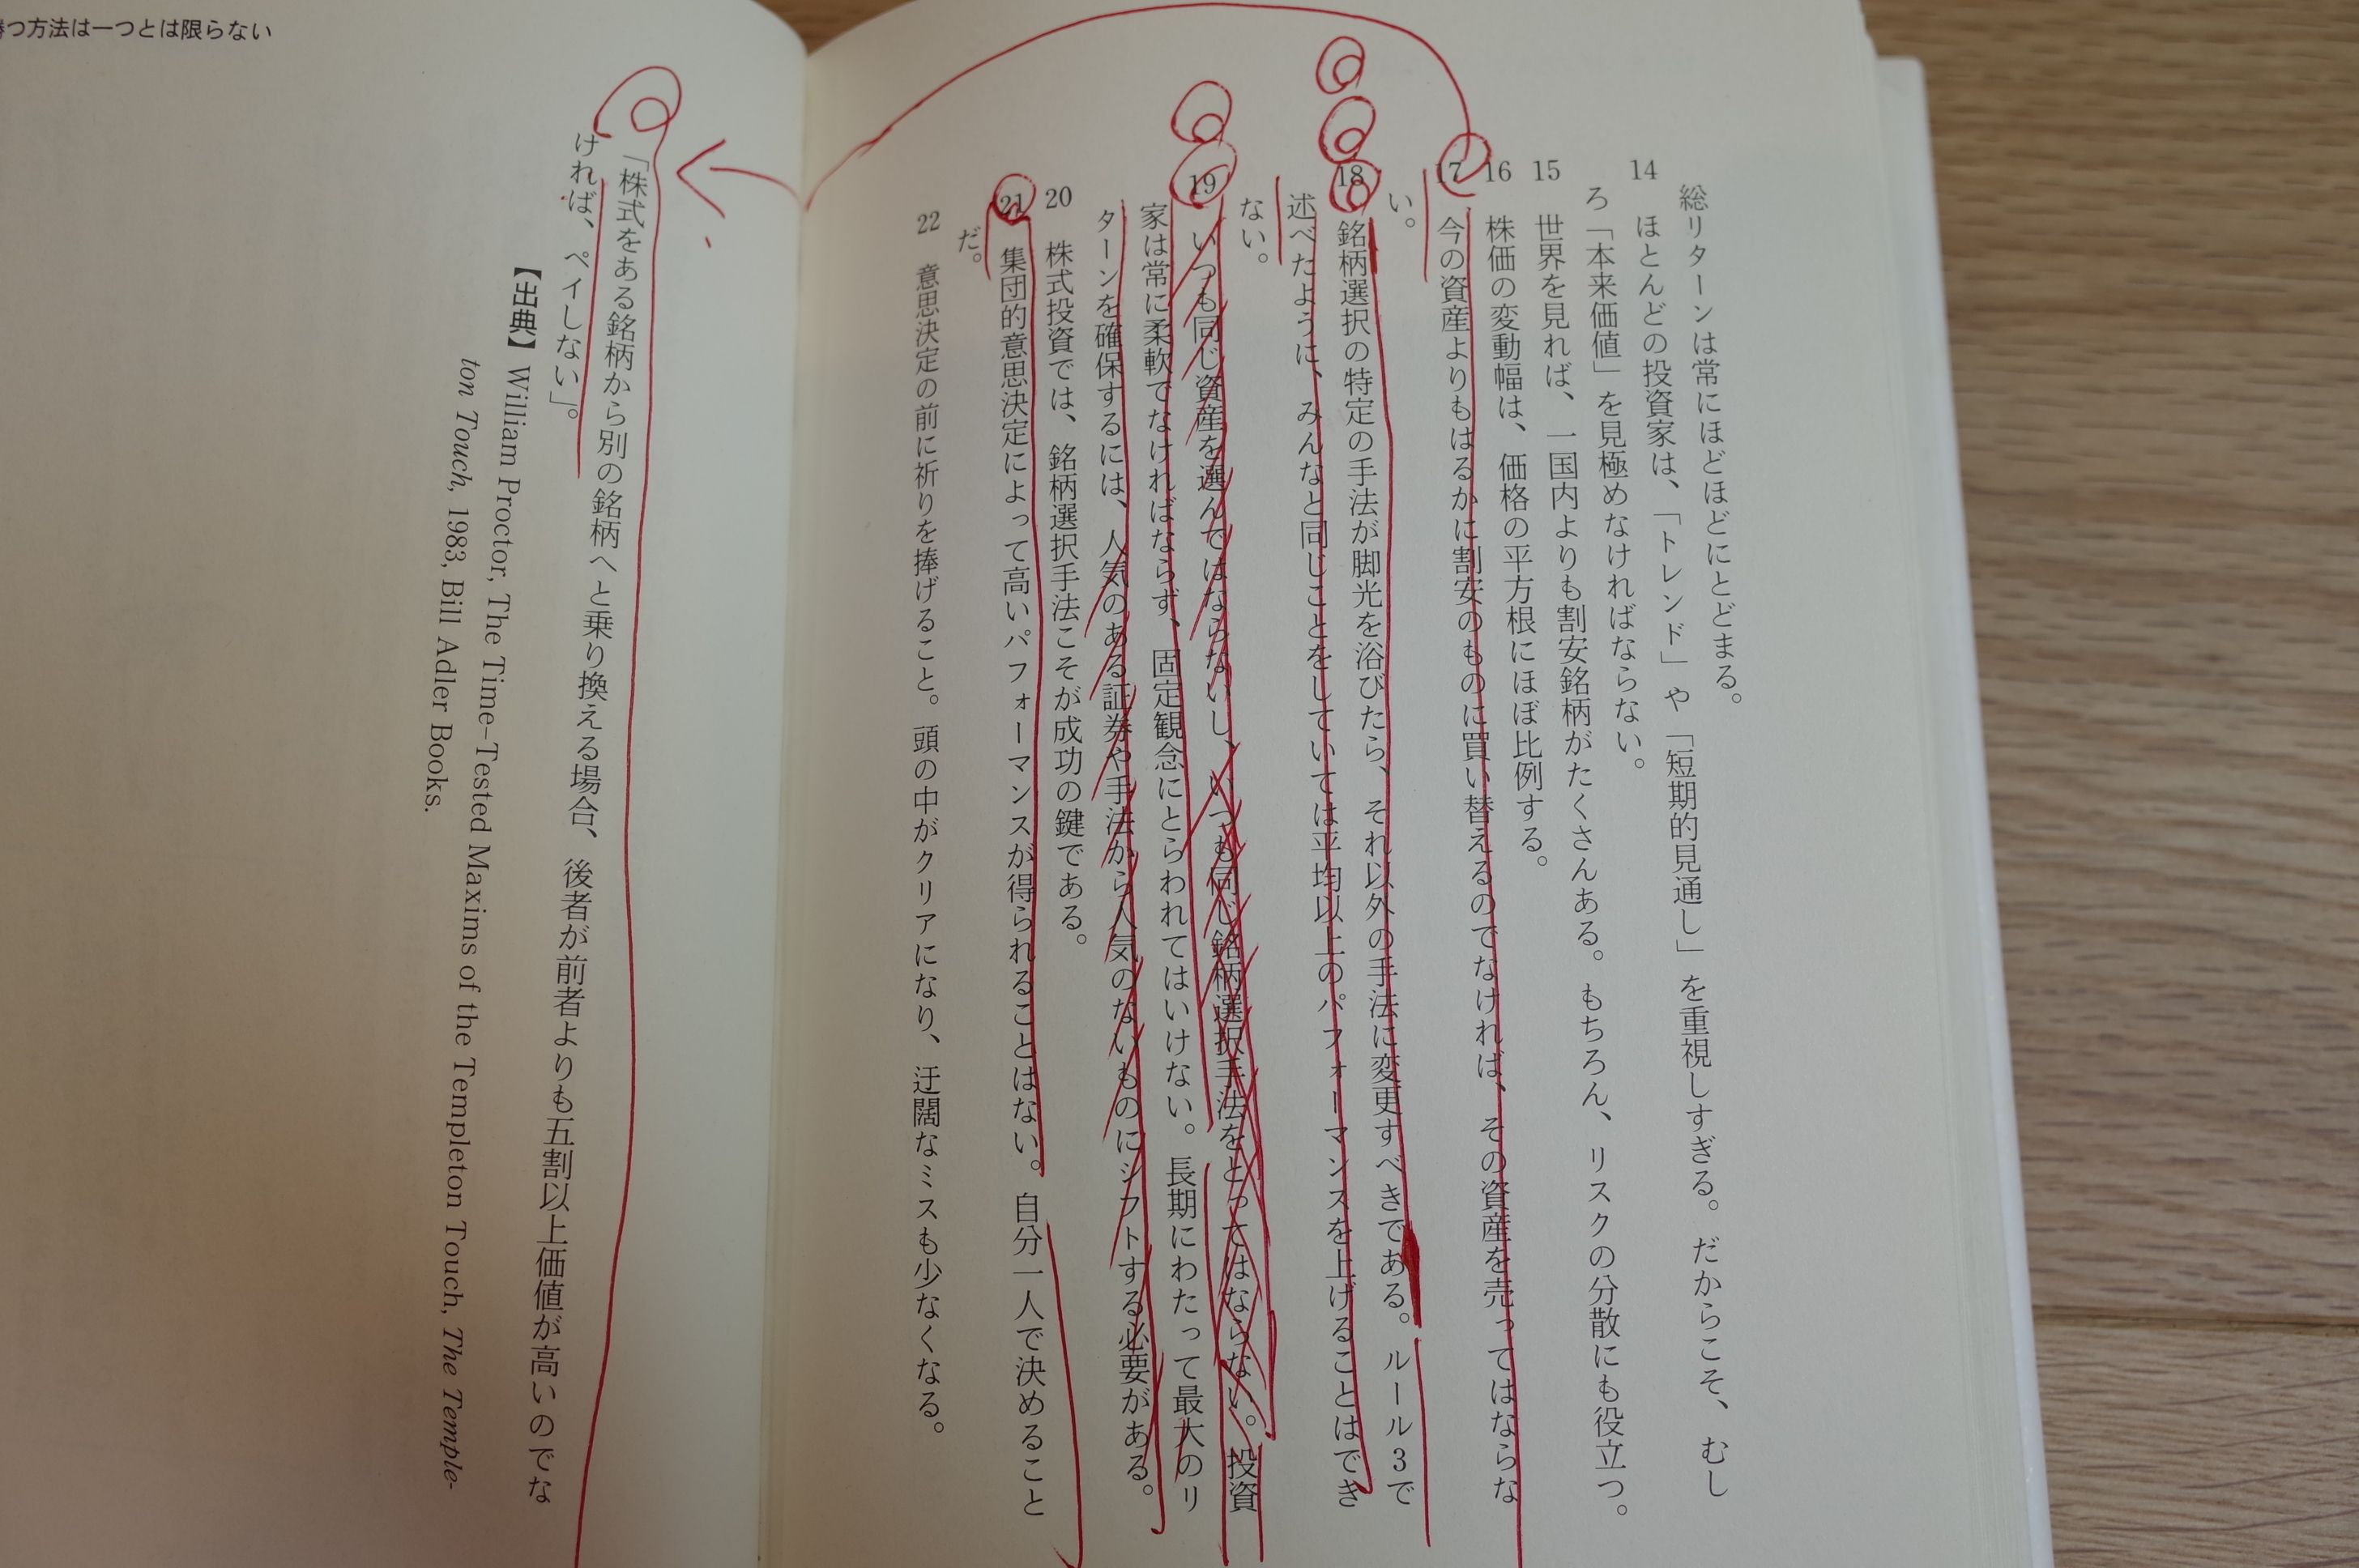 総リターンは常にほどほどにとどまる。
14 ほとんどの投資家は、「トレンド」や「短期的見通し」を重視しすぎる。だからこそ、むし
ろ「本来価値」を見極めなければならない。
15 世界を見れば、一国内よりも割安銘柄がたくさんある。もちろん、リスクの分散にも役立つ。
16 株価の変動幅は、価格の平方根にほぼ比例する。
17 今の資産よりもはるかに割安のものに買い替えるのでなければ、その資産を売ってはならな
い。
18 銘柄選択の特定の手法が脚光を浴びたら、それ以外の手法に変更すべきである。ルール3で
述べたように、みんなと同じことをしていては平均以上のパフォーマンスを上げることはでき
ない。
19 いつも同じ資産を選んではならないし、いつも同じ銘柄選択手法をとってはならない。投資
家は常に柔軟でなければならず、固定観念にとらわれてはいけない。長期にわたって最大のリ
ターンを確保するには、人気のある証券や手法から人気のないものにシフトする必要がある。
20 株式投資では、銘柄選択手法こそが成功の鍵である。
21 集団的意思決定によって高いパフォーマンスが得られることはない。自分一人で決めること
だ。
22 意思決定の前に祈りを捧げること。頭の中がクリアになり、迂闊なミスも少なくなる。
つ方法は一つとは限らない
「株式をある銘柄から別の銘柄へと乗り換える場合、後者が前者よりも五割以上価値が高いのでな
ければ、ペイしない」。
【出典】William Proctor, The Time-Tested Maxims of the Templeton Touch, The Temple-
ton Touch, 1983, Bill Adler Books.